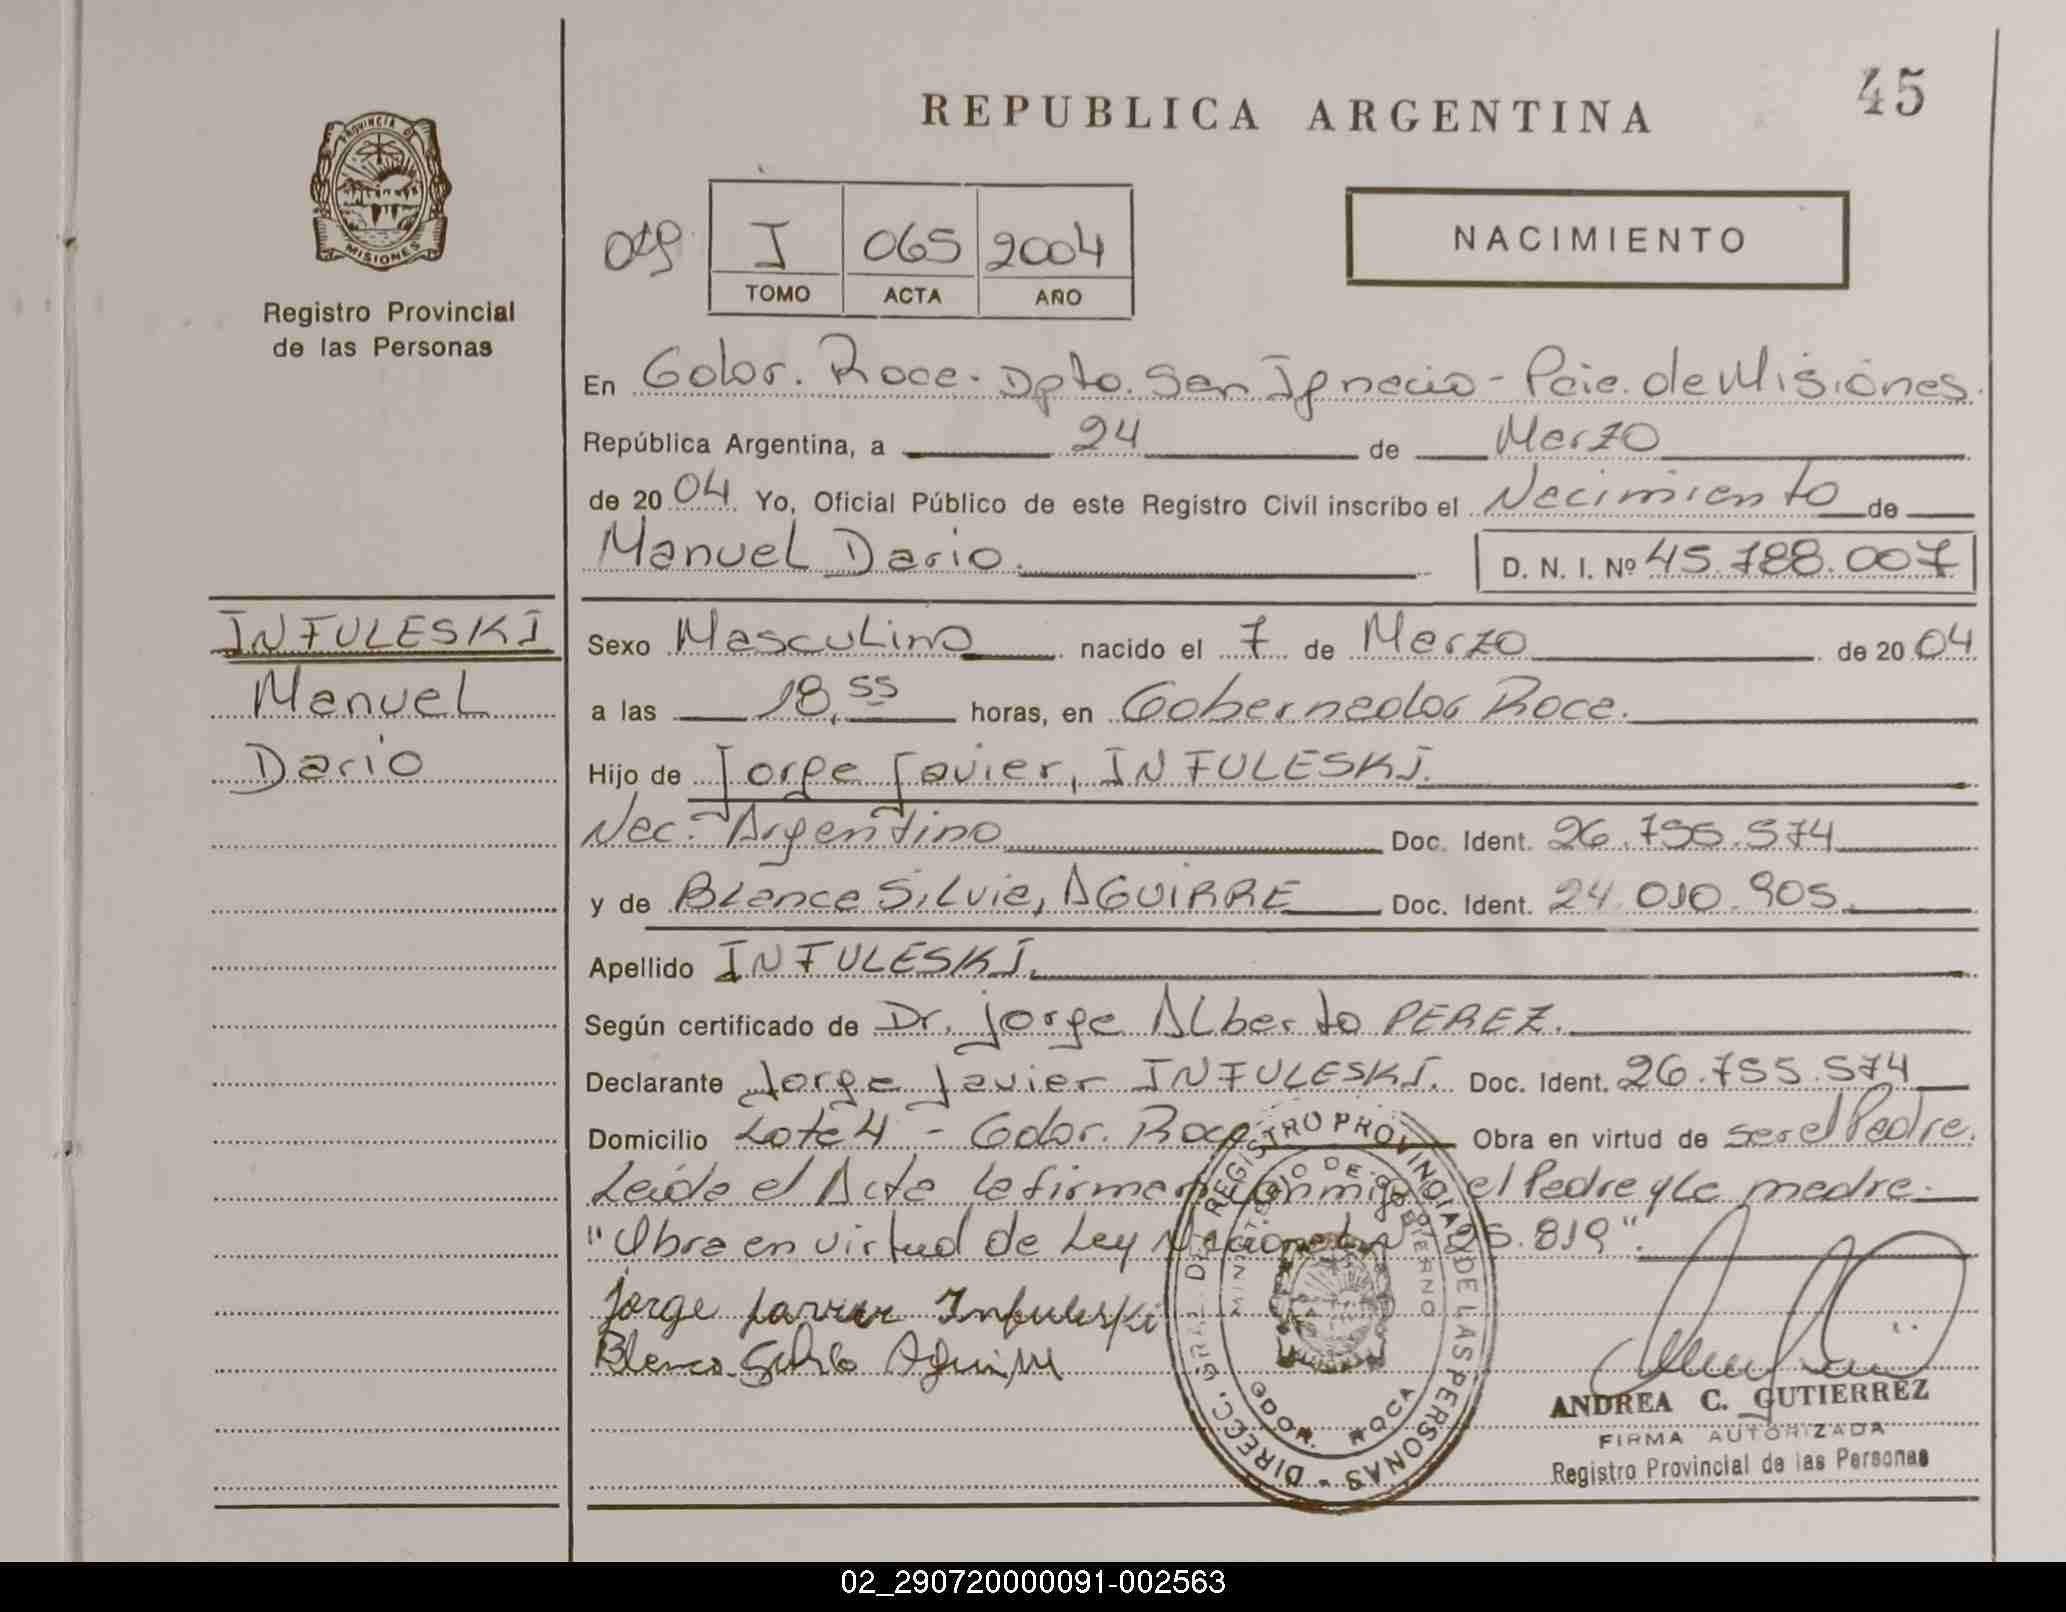 45
REPUBLICA ARGENTINA
PROVINCIA DE
MISIONES
Registro Provincial
de las Personas
019 I 065 2004
TOMO ACTA AÑO
NACIMIENTO
En Gdor. Roca. Dpto. San Ignacio - Pcia. de Misiones.
República Argentina, a 24 de Marzo
de 2004 Yo, Oficial Público de este Registro Civil inscribo el Nacimiento de
Manuel Dario. D. N. I. Nº 45.788.007
INFULESKI
Manuel
Dario
Sexo Masculino nacido el 7 de Marzo de 2004
a las 18,55 horas, en Gobernador Roca.
Hijo de Jorge Javier, INFULESKI.
Nac. Argentino Doc. Ident. 26.755.574
y de Blanca Silvia, AGUIRRE Doc. Ident. 24.010.905.
Apellido INFULESKI.
Según certificado de Dr. Jorge Alberto PEREZ.
Declarante Jorge Javier INFULESKI. Doc. Ident. 26.755.574
Domicilio Lote 4 - Gdor. Roca. Obra en virtud de ser el Padre.
Leída el Acta la firman conmigo el Padre y la madre.
"Obra en virtud de Ley Nacional Nº 25.819".
Jorge Javier Infuleski
Blanca Silvia Aguirre
DIRECC. GRAL. DEL REGISTRO PROVINCIAL DE LAS PERSONAS -
MINISTERIO DE GOBIERNO
GDOR. ROCA
ANDREA C. GUTIERREZ
FIRMA AUTORIZADA
Registro Provincial de las Personas
02_290720000091-002563